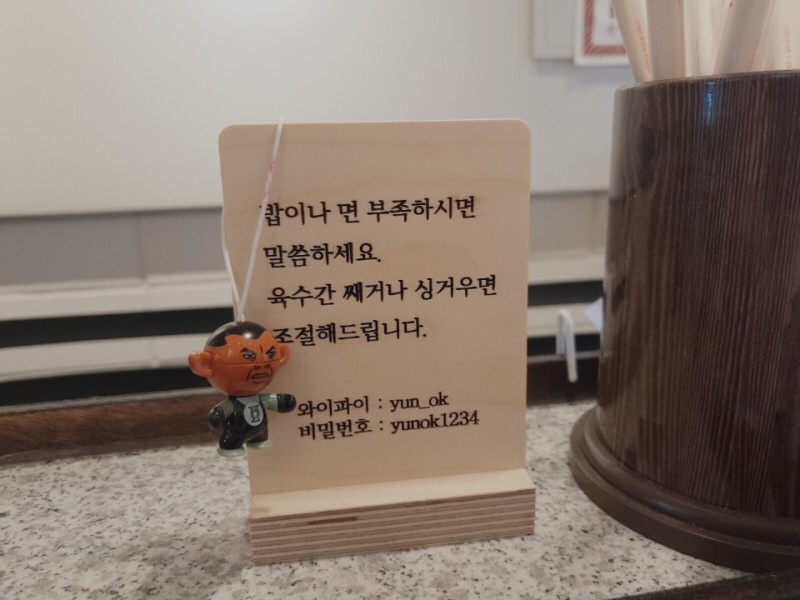 밥이나 면 부족하시면
말씀하세요.
육수간 쩨거나 싱거우면
조절해드립니다.
와이파이 : yun_ok
비밀번호 : yunok1234